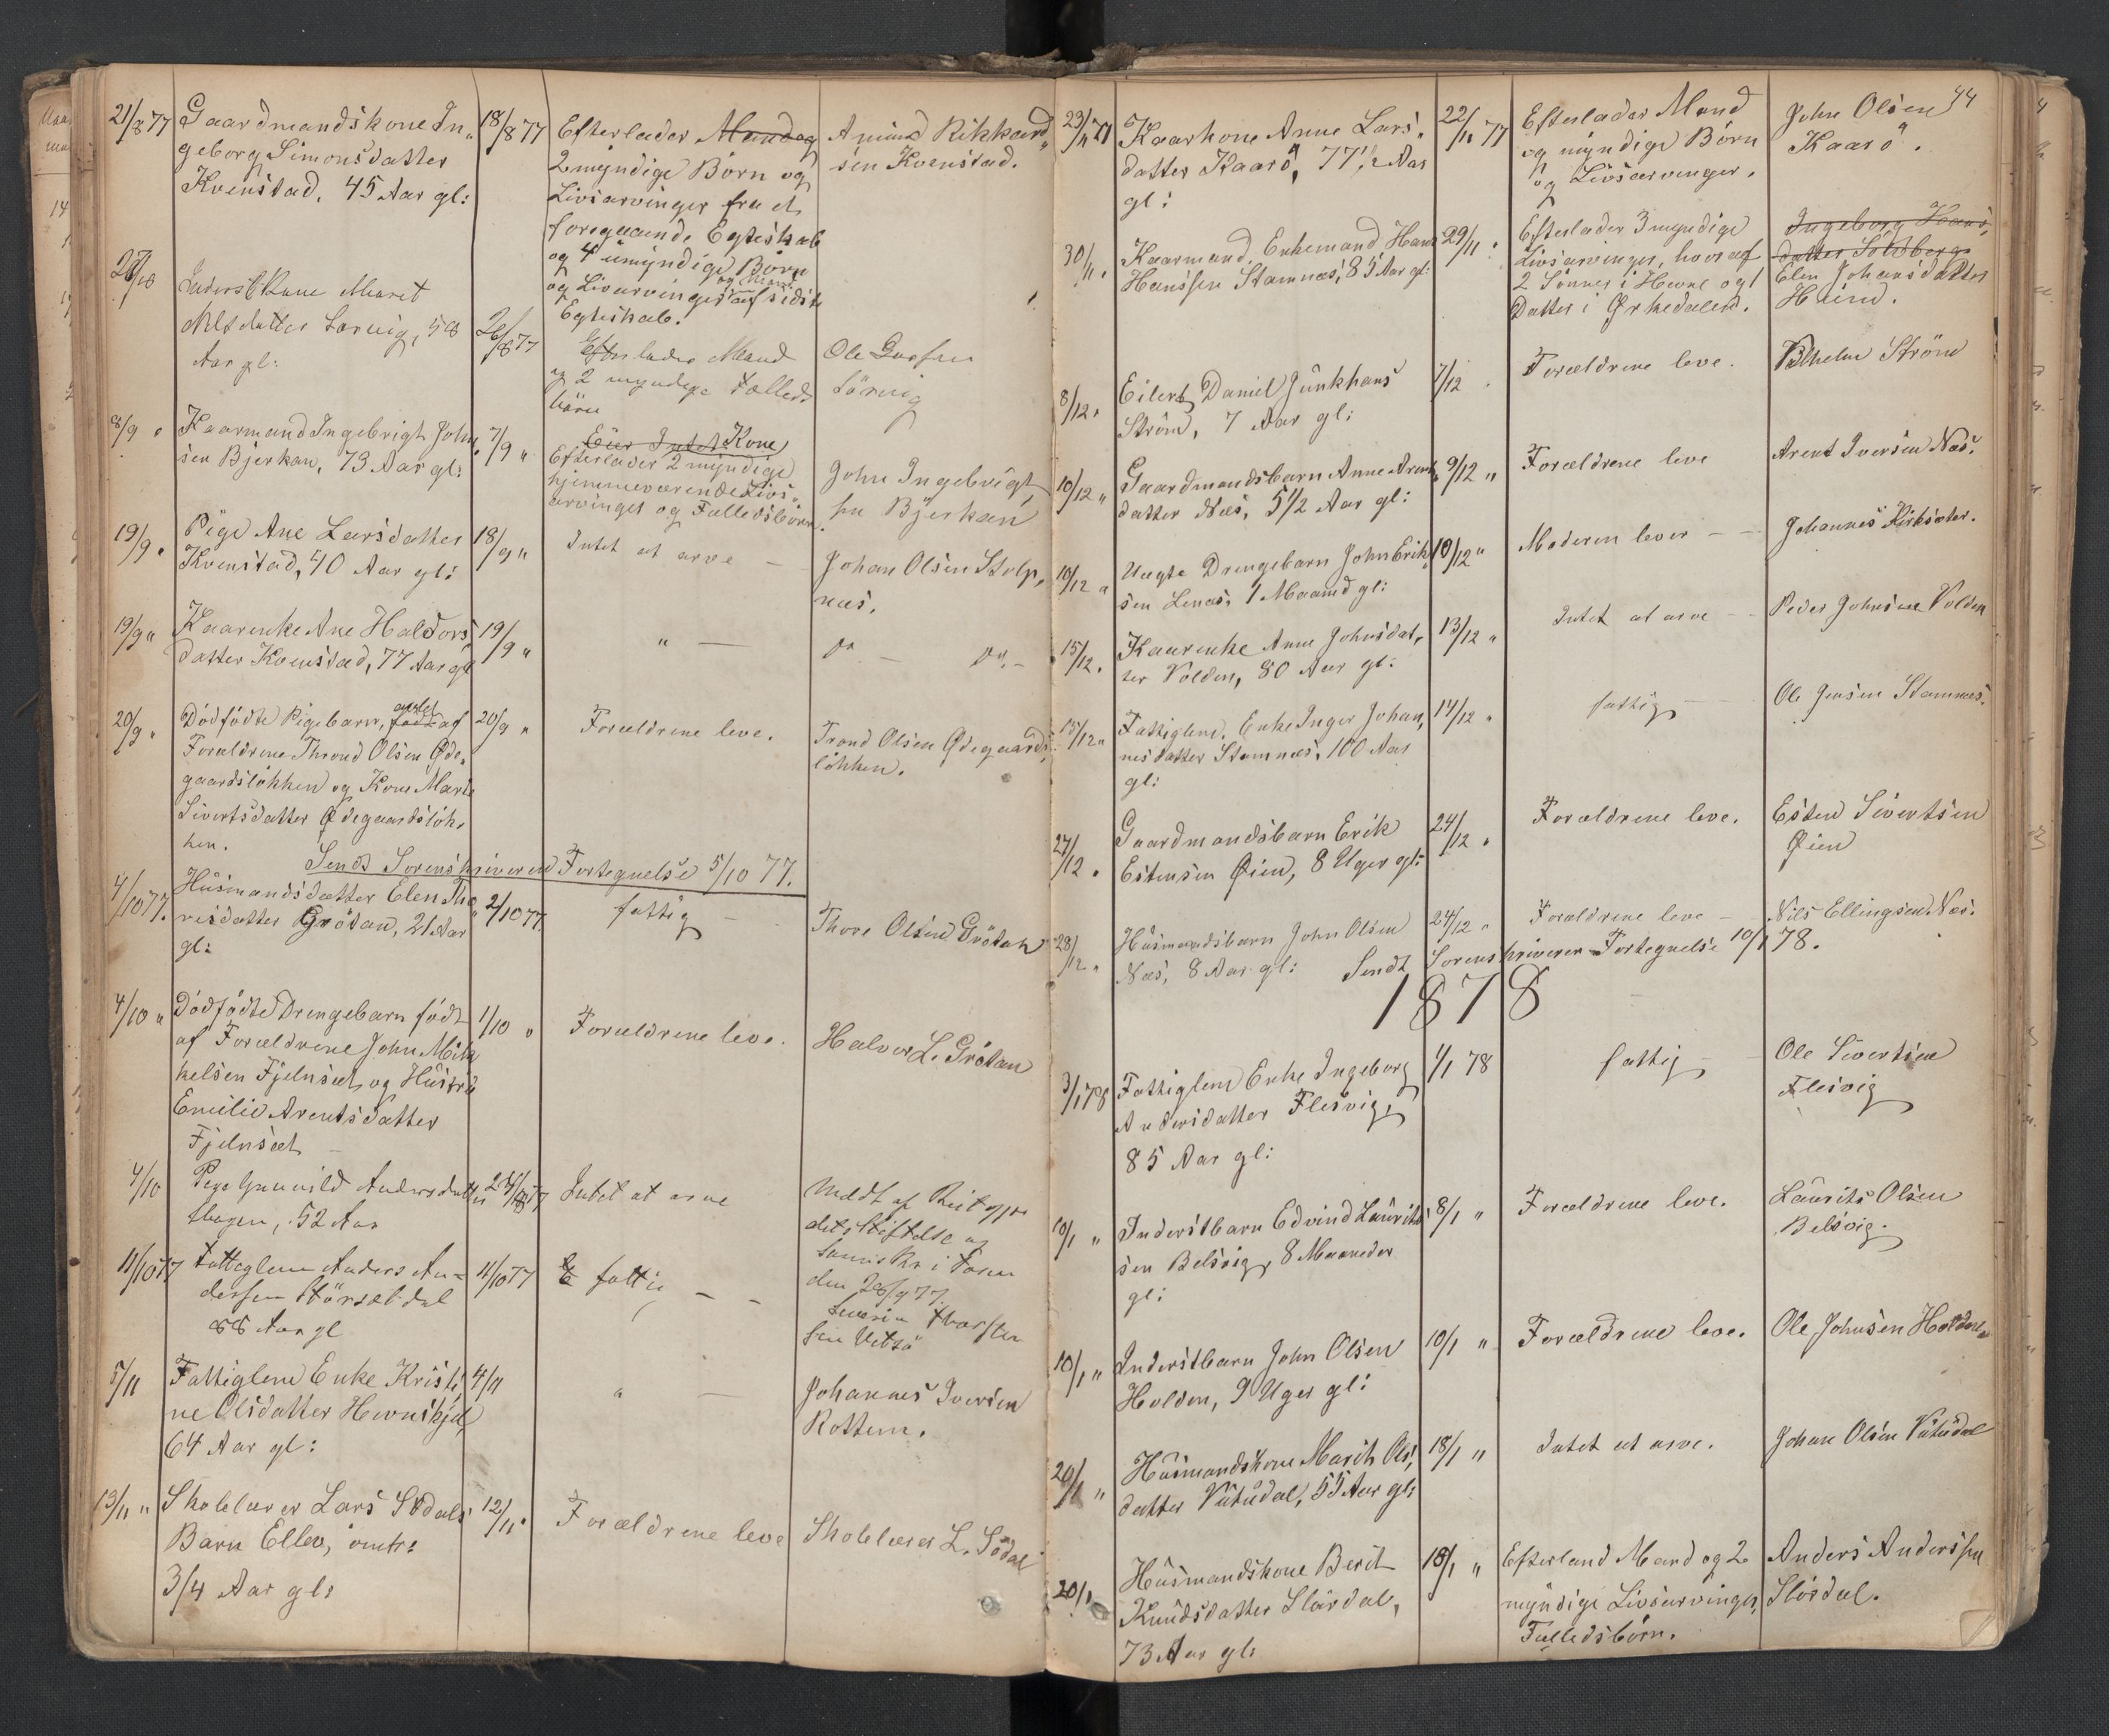 21/8 77 Gaardmandskone In-
geborg Simonsdatter
Kvenstad, 45 Aar gl:
18/8 77
Efterlader Mand og
2 myndige Börn og
Livsarvinger fra et
foregaaende Egteskab
og 4 umyndige Börn
og Livsarvinger af sidste
Egteskab.
Amund Rikhard-
sen Kvenstad.
Inderst Kone Marit
Nilsdatter Sörvig, 58
Aar gl:
26/8 77
Efterlader Mand
og 2 myndige Fælleds
börn
Ole
Sörvig
8/9 " Kaarmand Ingebrigt John
sen Bjerkan, 73 Aar gl:
7/9 "
Eier Intet Kone
Efterlader 2 myndige
hjemmeværende Livs-
arvinger og Fælledsbörn
John Ingebrigt
sen Bjerkan
19/9 " Pige Ane Larsdatter
Kvenstad, 40 Aar gl:
18/9 "
Intet at arve —
Johan Olsen Stolp-
næs.
19/9 " Kaarenke Ane Haldors
datter Kvenstad, 77 Aar gl
19/9 "
" —
do — do —
20/9 " Dödfödte Pigebarn, avlet
födt af
Forældrene Thrond Olsen Öde-
gaardslökken og Kone Marie
Sivertsdatter Ödegaardslök-
ken.
20/9 "
Forældrene leve.
Trond Olsen Ödegaards
lökken.
Sendt Sorenskriveren Fortegnelse 5/10 77.
4/10 77. Husmandsdatter Elen Tho
resdatter Grötan, 21 Aar
gl:
2/10 77.
fattig —
Thore Olsen Grötan
4/10 " Dödfödte Drengebarn födt
af Forældrene John Mik
kelsen Fjelnset og Hustru
Emilie Arentsdatter
Fjelnset —
1/10 "
Forældrene leve.
Halvor L. Grötan
4/10 Pige Gunild Andersdatter
Hagen, 52 Aar
Intet at arve
Meldt af
den 28/9 77.
11/10 77 Fattiglem Anders An-
dersen Störsetdal
88 Aar gl
11/10 77
fattig — —
5/11 Fattiglem Enke Kristi
ne Olsdatter Hevnskjel,
64 Aar gl:
4/11
" —
Johannes Iversen
Rottem.
13/11 " Skolelærer Lars Södals
Barn Ellev, omtr:
3/4 Aar gl:
12/11 "
Forældrene leve
Skolelærer L. Södal
44
23/11 77 Kaarkone Anne Lars-
datter Kaarö, 77 1/2 Aar
gl:
22/11 77
Efterlader Mand
og myndige Börn
og Livsarvinger.
John Olsen
Kaarö.
30/11 " Kaarmand, Enkemand Hans
Hanssen Stamnæs, 85 Aar gl:
29/11 "
Efterlader 3 myndige
Livsarvinger, hvoraf
2 Sönner i Hevne og 1
Datter i Ørkedalen.
Ingeborg Hans-
datter Solsberg
Elen Johansdatter
Heim.
8/12 " Eilert Daniel Junkhans
Ström, 7 Aar gl:
7/12 "
Forældrene leve.
Vilhelm Ström
10/12 " Gaardmandsbarn Anne Arents
datter Næs, 5 1/2 Aar gl:
9/12 "
Forældrene leve
Arent Iversen Næs.
10/12 " Uægte Drengebarn John Erik-
sen Lenæs, 1 Maaned gl:
10/12 "
Moderen lever — —
Johannes Kirksæter.
15/12 " Kaarenke Anne Johnsdat-
ter Volden, 80 Aar gl:
13/12 "
Intet at arve —
Peder Johnsen Volden
15/12 " Fattiglem, Enke Inger Johan-
nesdatter Stamnæs, 100 Aar
gl:
14/12 "
fattig —
Ole Jensen Stamnæs.
27/12 " Gaardmandsbarn Erik
Estensen Öien, 8 Uger gl:
24/12 "
Forældrene leve.
Esten Sivertsen
Öien
28/12 " Husmandsbarn John Olsen
Næs, 8 Aar gl:
24/12 "
Forældrene leve —
Nils Ellingsen Næs.
Sendt Sorenskriveren Fortegnelse 10/1 78.
1878
3/1 78 Fattiglem Enke Ingeborg
Andersdatter Flesvig,
85 Aar gl:
1/1 78
fattig —
Ole Sivertsen
Flesvig
10/1 " Inderstbarn Edvind Laurits
sen Belsvig, 8 Maaneder
gl:
8/1 "
Forældrene leve.
Laurits Olsen
Belsvig.
10/1 " Inderstbarn John Olsen
Holden, 9 Uger gl:
10/1 "
Forældrene leve.
Ole Johnsen Holden
20/1 " Husmandskone Marit Ols-
datter Vutudal, 55 Aar gl:
18/1 "
Intet at arve.
Johan Olsen Vutudal
20/1 Husmandskone Berit
Knudsdatter Slördal,
73 Aar gl:
18/1 "
Efterland Mand og 2
myndige Livsarvinger,
Fælledsbörn.
Anders Anderssen
Slördal.